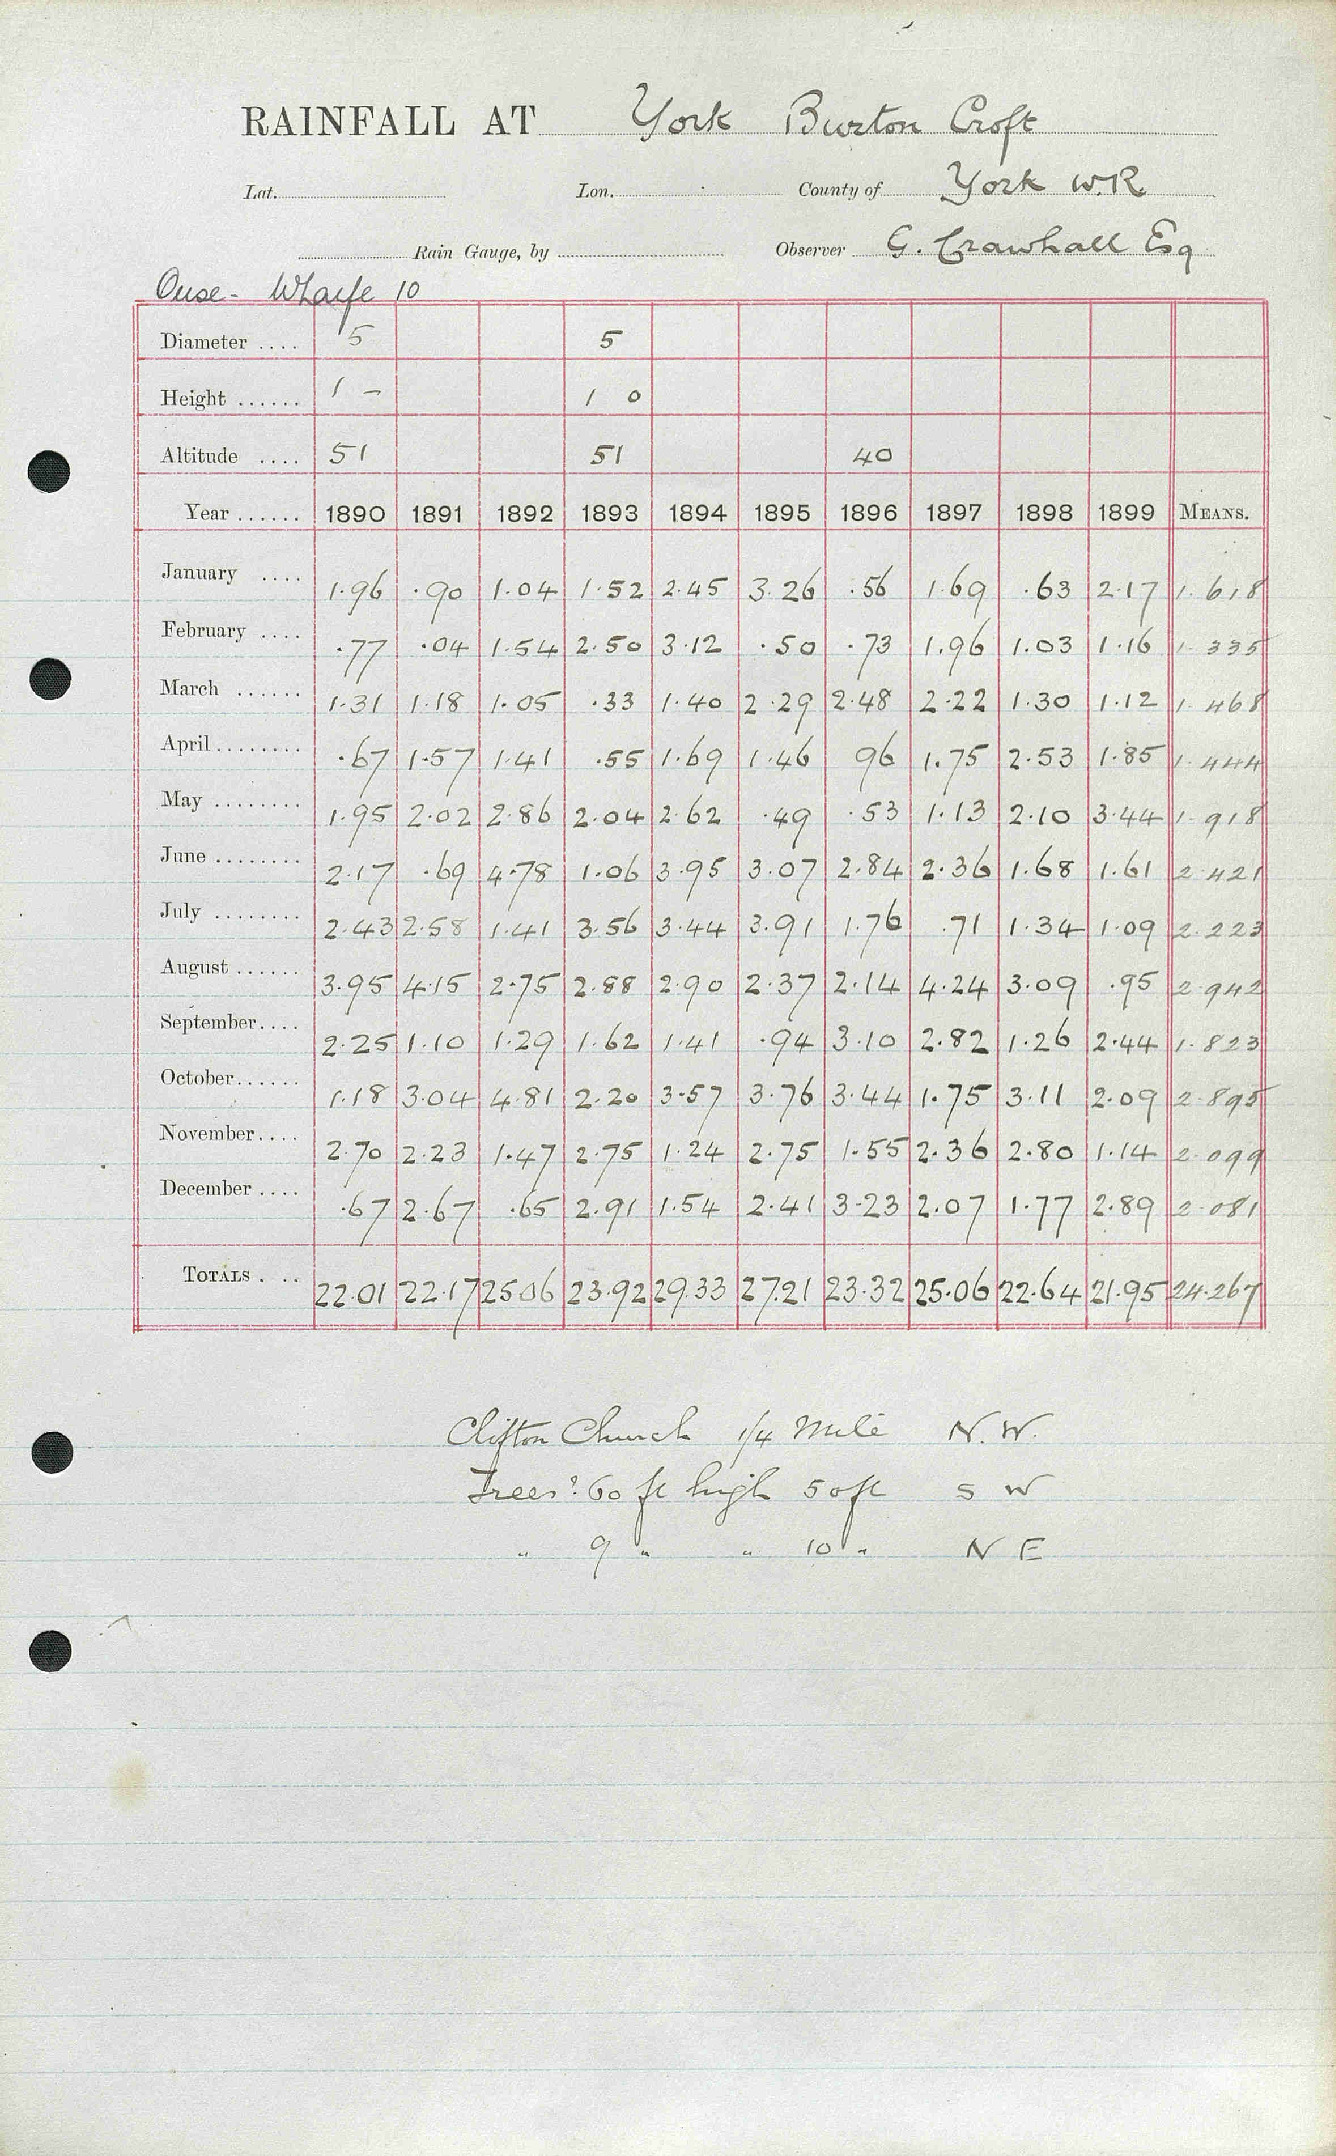 RAINFALL AT York Burton Croft
Lat. Lon. County of York W.R
Rain Gauge, by Observer G. Crawhall Esq
Ouse - Wharfe 10
Diameter .... 5 5
Height ...... 1 - 1 0
Altitude .... 51 51 40
Year ...... 1890 1891 1892 1893 1894 1895 1896 1897 1898 1899 MEANS.
January .... 1.96 .90 1.04 1.52 2.45 3.26 .56 1.69 .63 2.17 1.618
February .... .77 .04 1.54 2.50 3.12 .50 .73 1.96 1.03 1.16 1.335
March ...... 1.31 1.18 1.05 .33 1.40 2.29 2.48 2.22 1.30 1.12 1.468
April ........ .67 1.57 1.41 .55 1.69 1.46 96 1.75 2.53 1.85 1.444
May ........ 1.95 2.02 2.86 2.04 2.62 .49 .53 1.13 2.10 3.44 1.918
June ........ 2.17 .69 4.78 1.06 3.95 3.07 2.84 2.36 1.68 1.61 2.421
July ........ 2.43 2.58 1.41 3.56 3.44 3.91 1.76 .71 1.34 1.09 2.223
August ...... 3.95 4.15 2.75 2.88 2.90 2.37 2.14 4.24 3.09 .95 2.942
September.... 2.25 1.10 1.29 1.62 1.41 .94 3.10 2.82 1.26 2.44 1.823
October...... 1.18 3.04 4.81 2.20 3.57 3.76 3.44 1.75 3.11 2.09 2.895
November.... 2.70 2.23 1.47 2.75 1.24 2.75 1.55 2.36 2.80 1.14 2.099
December .... .67 2.67 .65 2.91 1.54 2.41 3.23 2.07 1.77 2.89 2.081
TOTALS . .. 22.01 22.17 25.06 23.92 29.33 27.21 23.32 25.06 22.64 21.95 24.267
Clifton Church 1/4 Mile N.W.
Trees? 60 ft high 50ft S W
" 9 " " 10 " N E